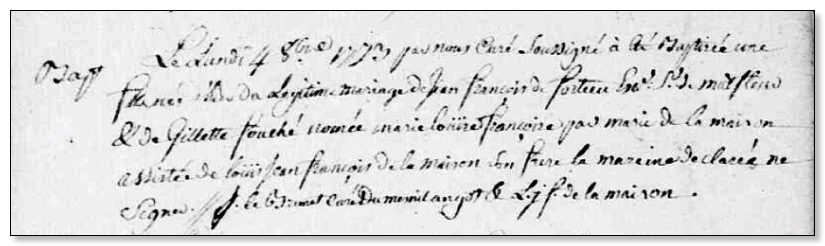 Bapt
Le Lundi 4 8bre 1773 par nous Curé soussigné à été Baptizée une
fille née du Legitime mariage de Jean françois de Ecu.r S.r de
& de Gillette fouché nomée marie loüise françoise par marie de la maison
assistée de loüis Jean françois de la maison son frere la mareine declarée ne
Signer. J. le Brumet Curé Dumenil angot & L. j. f. de la maison.